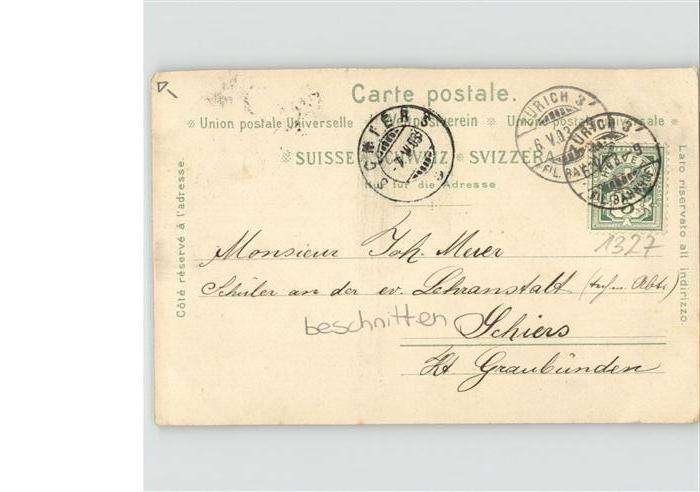 Carte postale.
Union postale Universelle Weltpostverein Unione postale universale
SUISSE SCHWEIZ SVIZZERA
Nur für die Adresse
Côté réservé à l'adresse.
Lato riservato all indirizzo.
SCHIERS
ZÜRICH 3
ZÜRICH 3
1327
Monsieur Joh. Meier
Schüler an der ev. Lehranstalt
beschnitten Schiers
Kt Graubünden